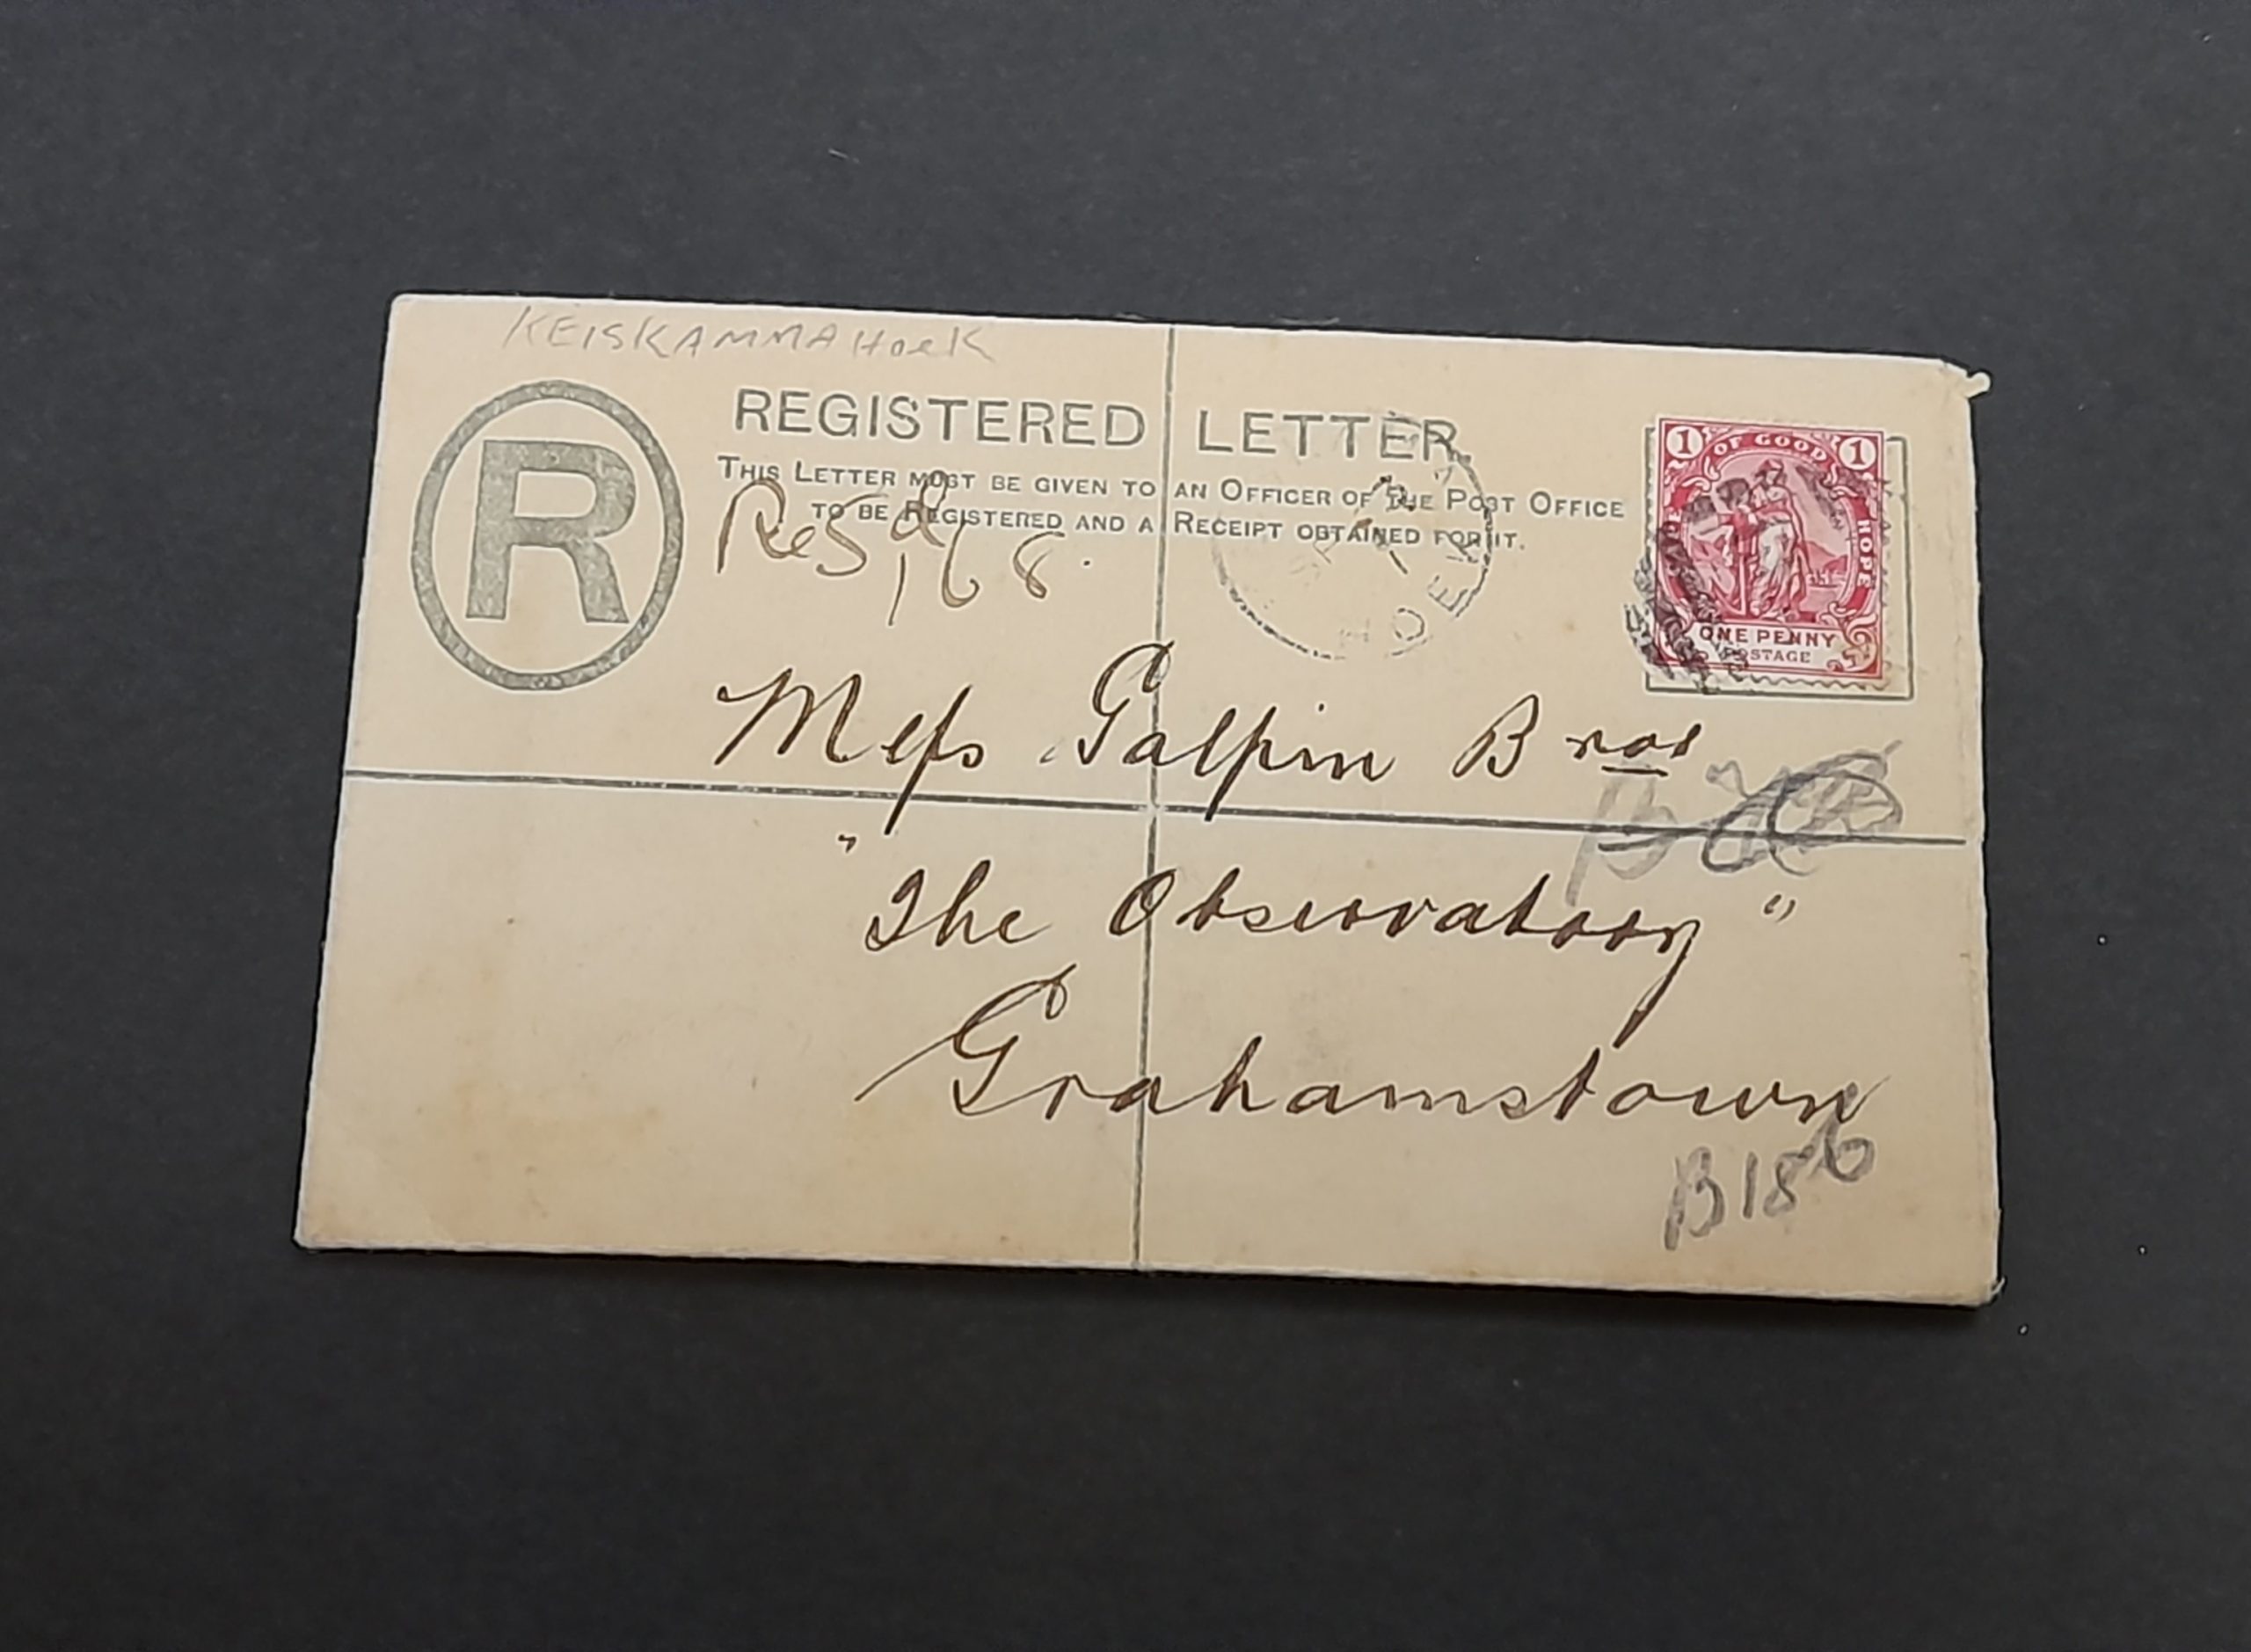 KEISKAMMA HOEK
R
REGISTERED LETTER.
THIS LETTER MUST BE GIVEN TO AN OFFICER OF THE POST OFFICE
TO BE REGISTERED AND A RECEIPT OBTAINED FOR IT.
Regd 168.
HOEK
1 OF GOOD 1
HOPE
ONE PENNY
POSTAGE
Mess Galpin Bros
"The Observatory"
Grahamstown
B186